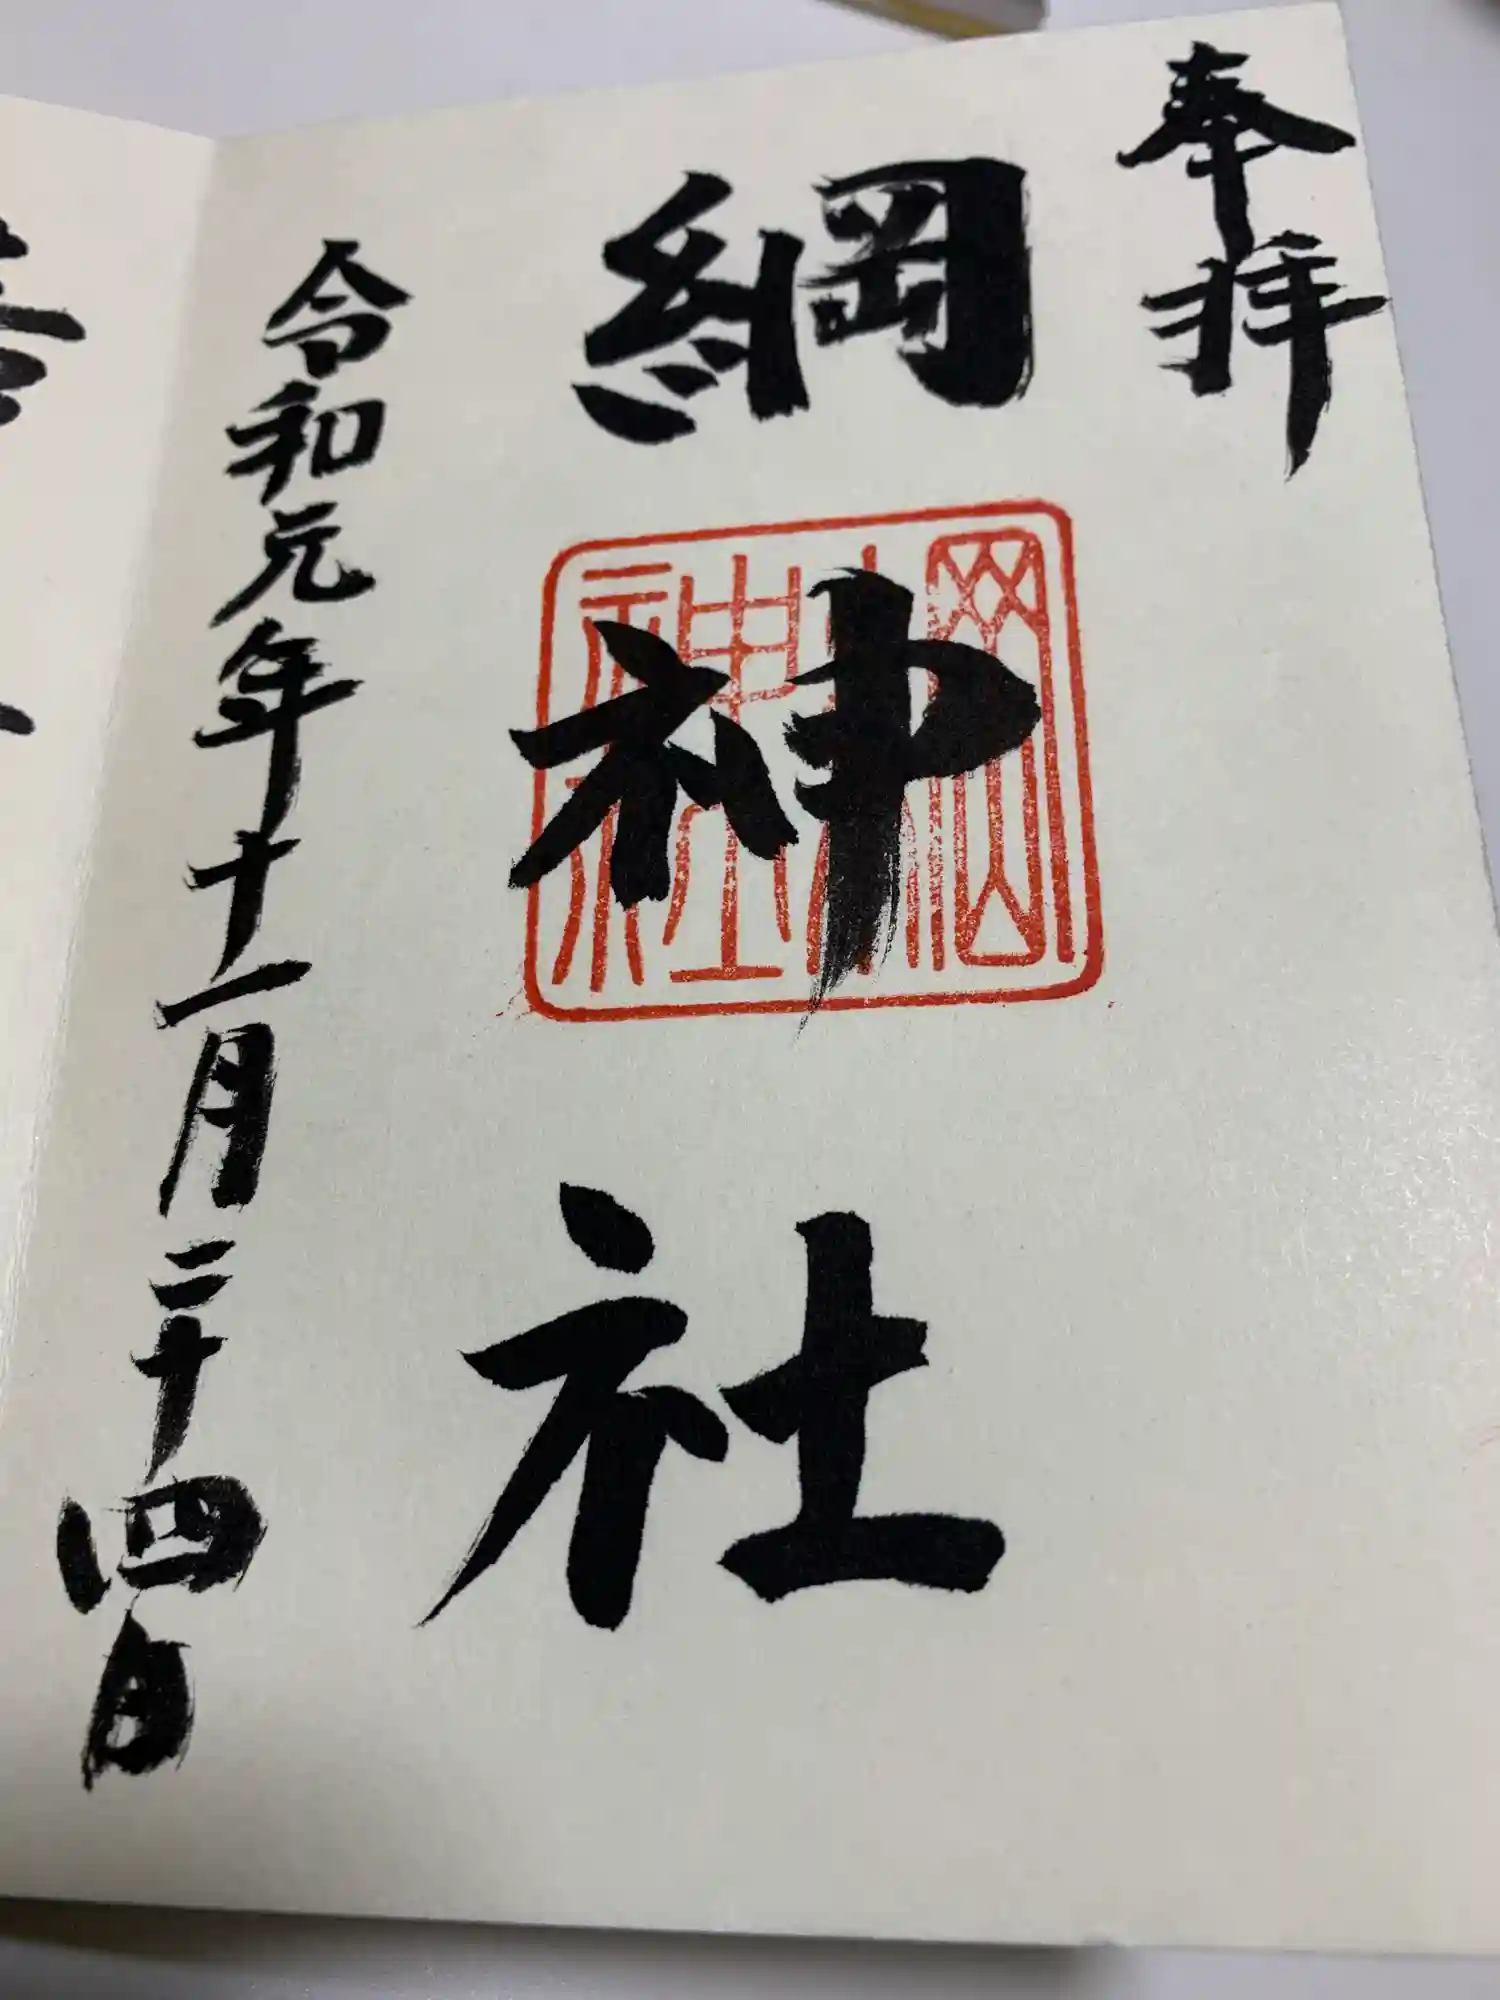 奉拝
綱神社
綱神社
令和元年十一月二十四日